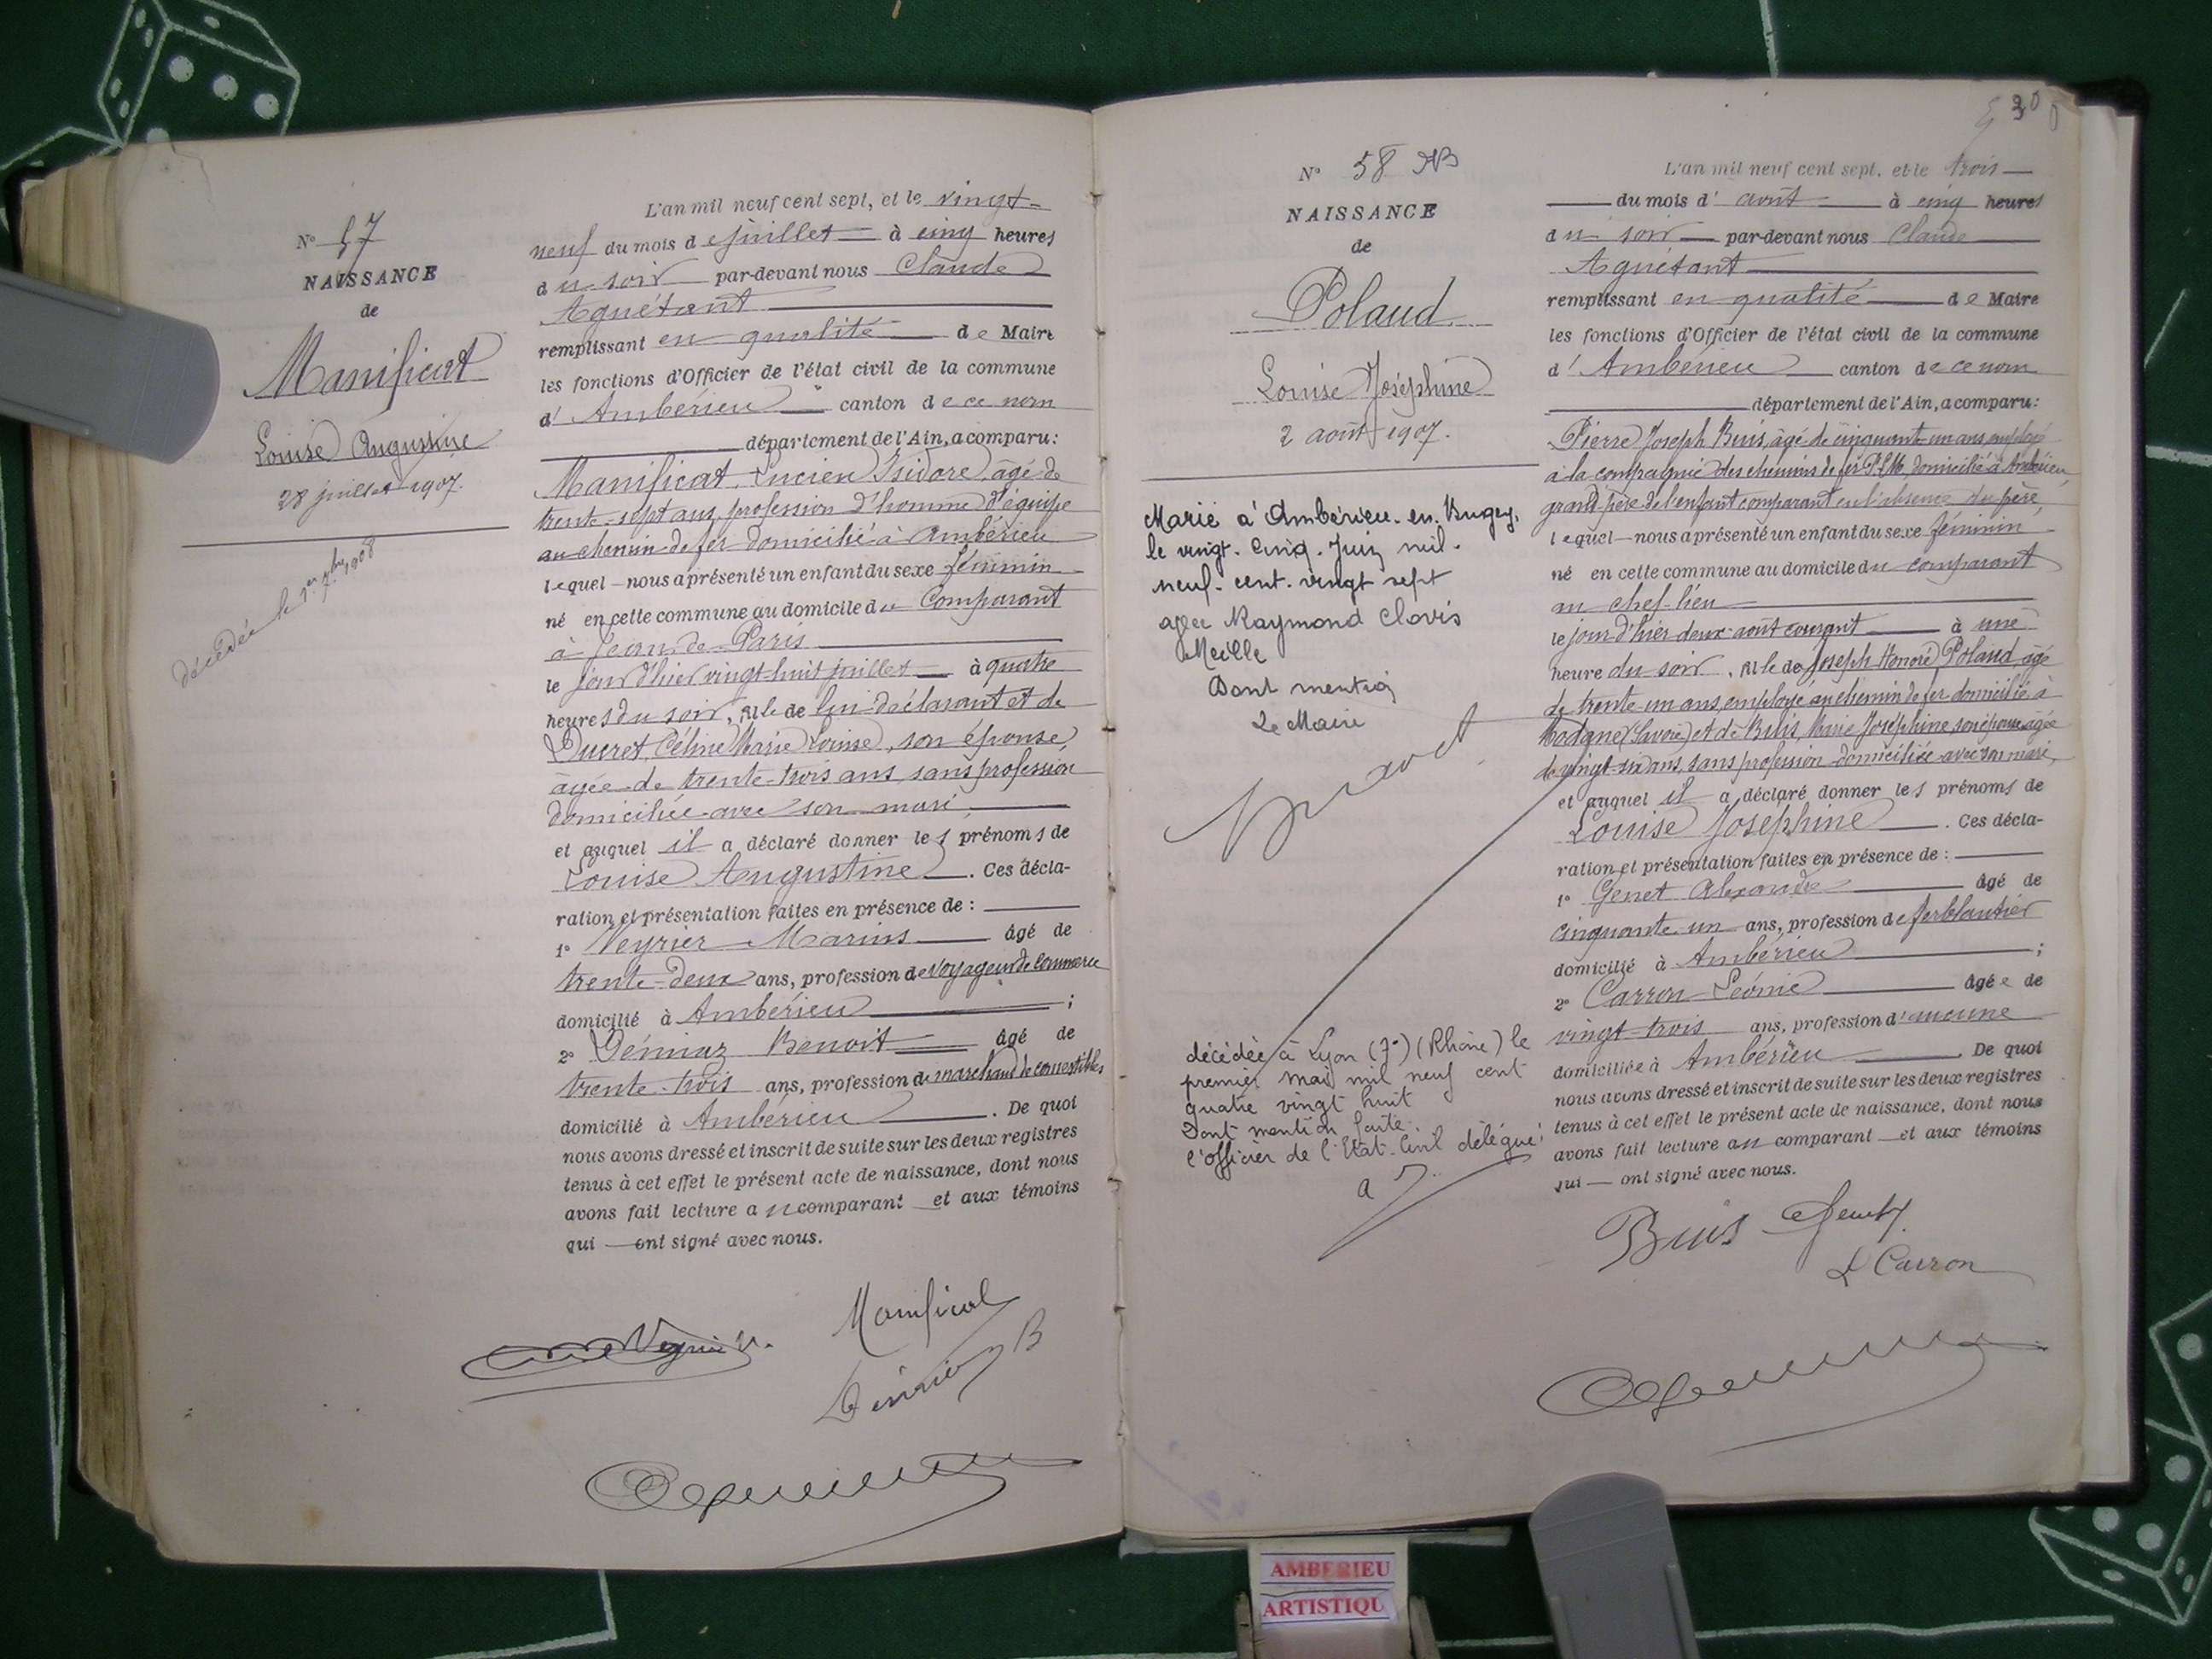 N° 57
NAISSANCE
de
Manificat
Louise Augustine
28 juillet 1907.
décédée le 1er 7bre 1908
L'an mil neuf cent sept, et le vingt-
neuf du mois de juillet à cinq heures
du soir par-devant nous Claude
Aguétant
remplissant en qualité de Maire
les fonctions d'Officier de l'état civil de la commune
d'Ambérieu canton de ce nom
département de l'Ain, a comparu:
Manificat Lucien Isidore, âgé de
trente-sept ans, profession d'homme d'équipe
au chemin de fer domicilié à Ambérieu
lequel nous a présenté un enfant du sexe féminin
né en cette commune au domicile du Comparant
à Jean de Paris
le jour d'hier vingt-huit juillet à quatre
heures du soir, fille de lui déclarant et de
Ducret Céline Marie Louise, son épouse,
âgée de trente-trois ans, sans profession
domiciliée avec son mari,
et auquel il a déclaré donner les prénoms de
Louise Augustine. Ces décla-
ration et présentation faites en présence de :
1° Veyrier Marius âgé de
trente-deux ans, profession de voyageur de commerce
domicilié à Ambérieu ;
2° Démiaz Benoit âgé de
trente-trois ans, profession de marchand de comestibles
domicilié à Ambérieu. De quoi
nous avons dressé et inscrit de suite sur les deux registres
tenus à cet effet le présent acte de naissance, dont nous
avons fait lecture au comparant et aux témoins
qui ont signé avec nous.
Manificat
Veyrier
B
30
N° 58
NAISSANCE
de
Polaud
Louise Joséphine
2 août 1907.
Marié à Ambérieu-en-Bugey,
le vingt-cinq Juin mil-
neuf-cent-vingt sept
avec Raymond Clovis
Meille
Dont mention
Le Maire
décédée à Lyon (7e) (Rhône) le
premier mai mil neuf cent
quatre vingt huit
Dont mention faite.
l'officier de l'Etat-Civil délégué
L'an mil neuf cent sept, et le trois
du mois d'août à cinq heures
du soir par-devant nous Claude
Aguétant
remplissant en qualité de Maire
les fonctions d'Officier de l'état civil de la commune
d'Ambérieu canton de ce nom
département de l'Ain, a comparu:
Pierre Joseph Buis, âgé de cinquante-un ans, employé
à la compagnie des chemins de fer P.L.M, domicilié à Ambérieu,
grand-père de l'enfant comparant en l'absence du père,
lequel nous a présenté un enfant du sexe féminin
né en cette commune au domicile du comparant
au chef-lieu
le jour d'hier deux août courant à une
heure du soir, fille de Joseph Honoré Polaud âgé
de trente un ans, employé au chemin de fer domicilié à
Modane (Savoie) et de Buis, Marie Joséphine, son épouse âgée
de vingt-six ans, sans profession domiciliée avec son mari,
et auquel il a déclaré donner les prénoms de
Louise Joséphine. Ces décla-
ration et présentation faites en présence de :
1° Genet Alexandre âgé de
cinquante-un ans, profession de ferblantier
domicilié à Ambérieu ;
2° Carron Léonie âgée de
vingt-trois ans, profession d'aucune
domiciliée à Ambérieu. De quoi
nous avons dressé et inscrit de suite sur les deux registres
tenus à cet effet le présent acte de naissance, dont nous
avons fait lecture au comparant et aux témoins
qui ont signé avec nous.
Buis
L Carron
AMBERIEU
ARTISTIQU